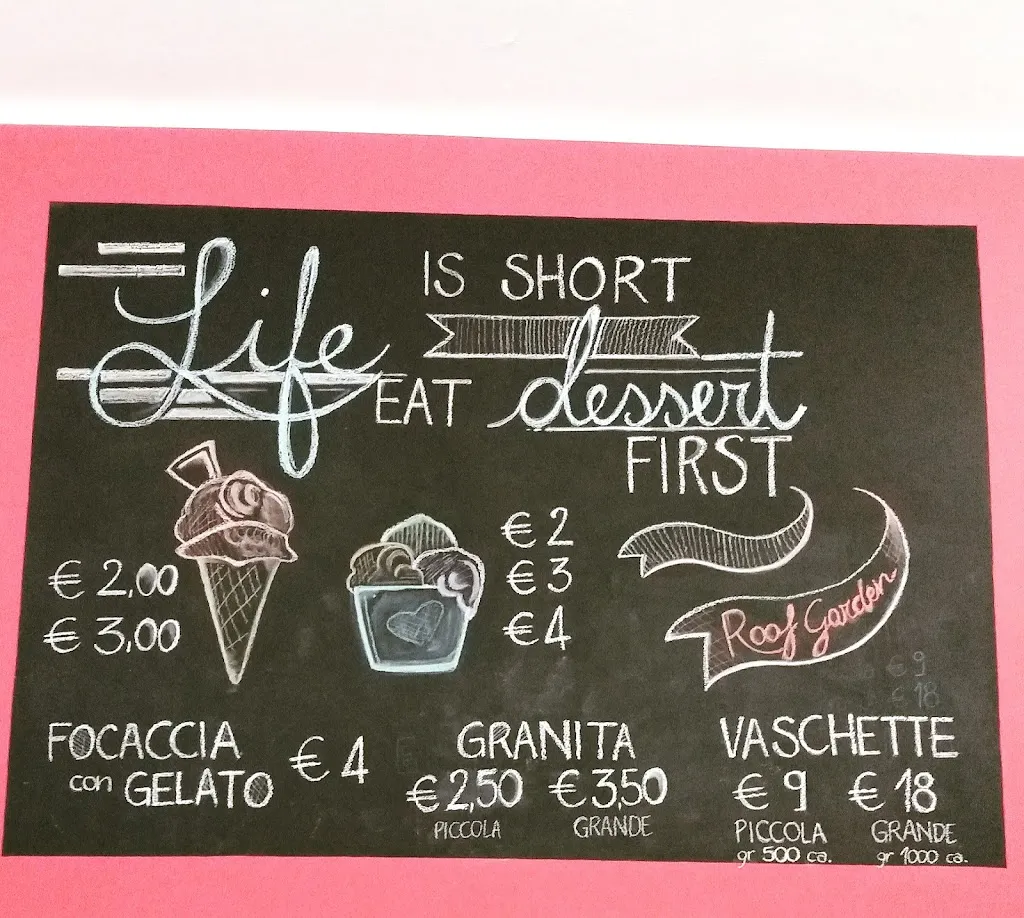 Life IS SHORT
EAT dessert
FIRST
€ 2,00
€ 3,00
€ 2
€ 3
€ 4
Roof Garden
€ 9
€ 18
FOCACCIA
con GELATO
€ 4
GRANITA
€ 2,50 € 3,50
PICCOLA GRANDE
VASCHETTE
€ 9 € 18
PICCOLA GRANDE
gr 500 ca. gr 1000 ca.